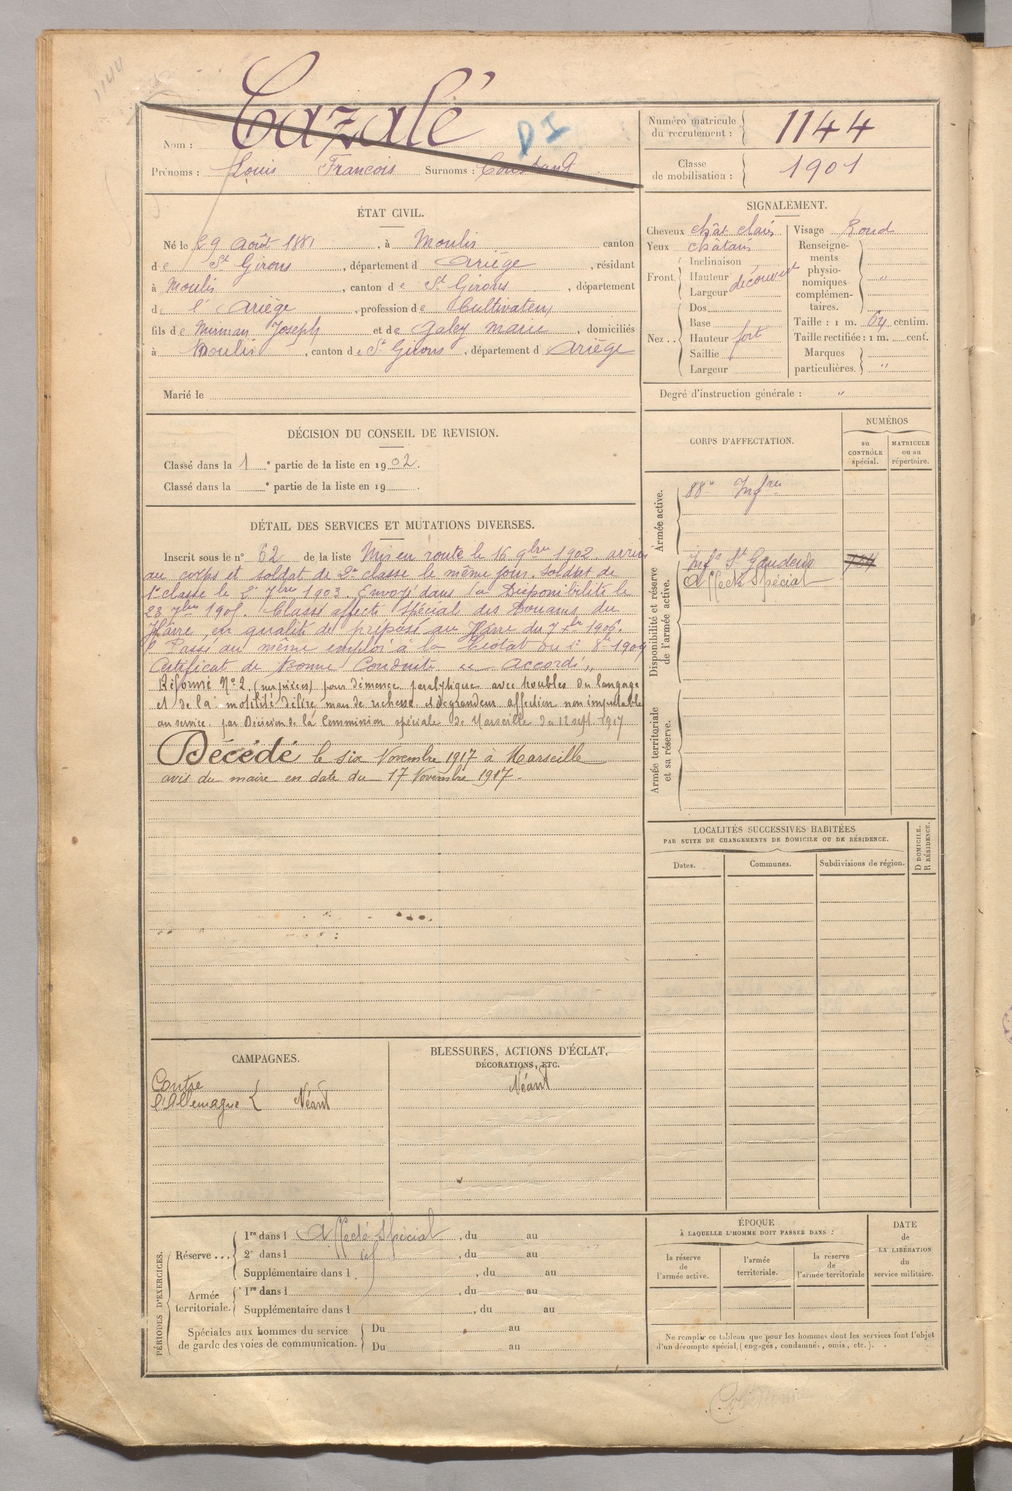 1144
Nom : Cazalé
DI
Prénoms : Louis François Surnoms : Constant
Numéro matricule du recrutement : 1144
Classe de mobilisation : 1901
ÉTAT CIVIL.
Né le 29 Août 1881, à Moulis canton
de St Girons, département d Ariège, résidant
à Moulis, canton de St Girons, département
de l' Ariège, profession de Cultivateur
fils de Joseph et de Galey Marie, domiciliés
à Moulis, canton de St Girons, département d Ariège
Marié le
SIGNALEMENT.
Cheveux chât clairs
Yeux châtains
Front. Inclinaison
Hauteur découvert
Largeur
Nez. Dos
Base
Hauteur fort
Saillie
Largeur
Visage Rond
Renseignements physionomiques complémentaires. "
Taille : 1 m. 64 centim.
Taille rectifiée : 1 m. cent.
Marques particulières. "
Degré d'instruction générale : "
DÉCISION DU CONSEIL DE REVISION.
Classé dans la 1e partie de la liste en 1902.
Classé dans la e partie de la liste en 19
DÉTAIL DES SERVICES ET MUTATIONS DIVERSES.
Inscrit sous le n° 62 de la liste Mis en route le 16 9bre 1902 arrivé
au corps et soldat de 2e classe le même jour. Soldat de
1e classe le 7bre 1903. Envoyé dans la Disponibilité le
23 7bre 1905. Classé affecté Spécial des Douanes du
Hâvre, en qualité de préposé au Hâvre du 7 1906.
Passé au même emploi à la Ciotat du 1er 1909
Certificat de Bonne Conduite "Accordé"
Réformé N°2 (sur pièces) pour démence paralytique avec troubles du langage
et de la motilité délire mais de richesse et de grandeur affection non imputable
au service par Décision de la Commission spéciale de Marseille du 12 sept. 1917
Décédé le six Novembre 1917 à Marseille
avis du maire en date du 17 Novembre 1917.
CORPS D'AFFECTATION.
NUMÉROS
au CONTRÔLE spécial.
MATRICULE ou au répertoire.
Armée active.
88e Infrie
Disponibilité et réserve de l'armée active.
Infie St Gaudens
Affecté Spécial
Armée territoriale et sa réserve.
LOCALITÉS SUCCESSIVES HABITÉES
PAR SUITE DE CHANGEMENTS DE DOMICILE OU DE RÉSIDENCE.
Dates. Communes. Subdivisions de région. D DOMICILE. R RÉSIDENCE.
CAMPAGNES.
Contre
l'Allemagne { Néant
BLESSURES, ACTIONS D'ÉCLAT,
DÉCORATIONS, ETC.
Néant
PÉRIODES D'EXERCICES.
Réserve... 1re dans l Affecté Spécial, du au
2e dans l , du au
Supplémentaire dans l , du au
Armée territoriale. 1re dans l , du au
Supplémentaire dans l , du au
Spéciales aux hommes du service
de garde des voies de communication. Du au
Du au
ÉPOQUE
À LAQUELLE L'HOMME DOIT PASSER DANS :
la réserve de l'armée active.
l'armée territoriale.
la réserve de l'armée territoriale
DATE de LA LIBÉRATION du service militaire.
Ne remplir ce tableau que pour les hommes dont les services font l'objet
d'un décompte spécial, (engagés, condamnés, omis, etc.).